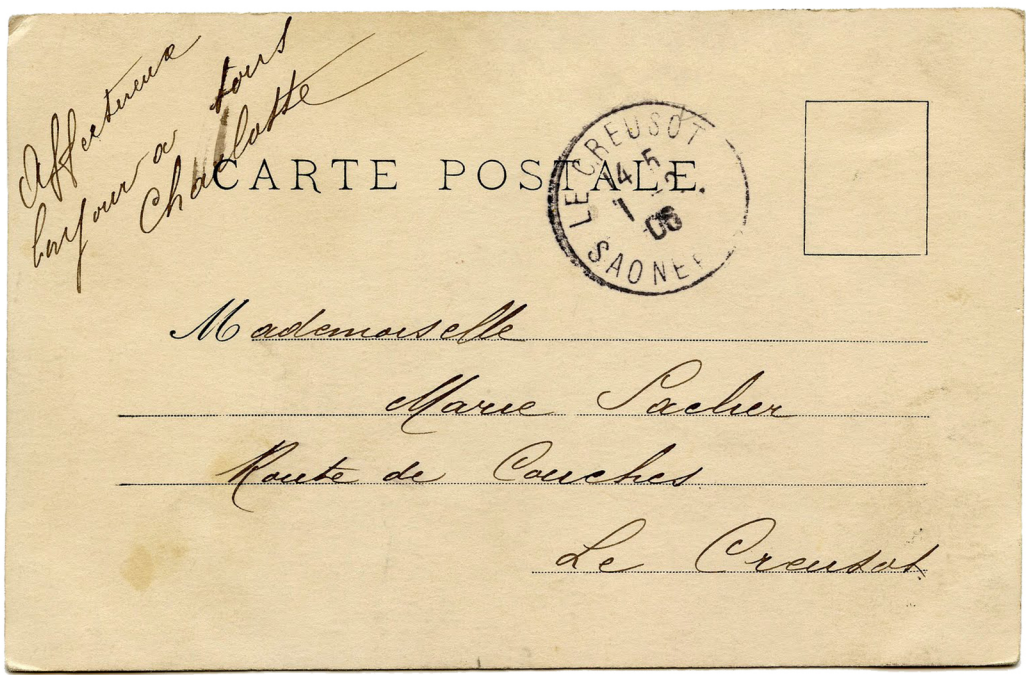 Affectueux
bonjour a tous
Charlotte
CARTE POSTALE.
LE CREUSOT
14 5
1 -2
06
SAONE
Mademoiselle
Marie Sacher
Route de Couches
Le Creusot